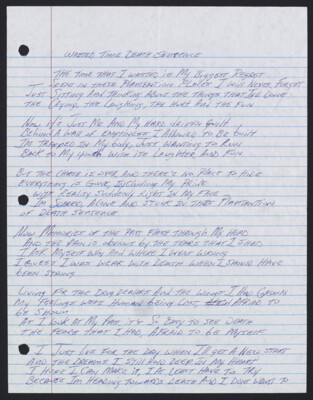 Wasted Time Death Sentence
The time that I wasted is My Biggest Regret
I spent in these Plantation Places I will Never Forget
Just Sitting And Thinking About the things that I've Done
the Crying, the Laughing, the Hurt And the Fun
Now it's Just Me And My Hard Driven Guilt
Behind A wall of Emptiness I Allowed to Be Built
I'm trapped in My Body, Just Wanting to Run
Back to My Youth With its Laughter And Fun
But the Chase is over And there's No Place to Hide
Everything is Gone, Including My Pride
With Reality Suddenly Right in My Face
I'm Scared, Alone And Stuck in that Plantation
of Death Sentence
Now Memories of the Past Flash through My Head
And the Pain is obvious By the tears that I Shed
I Ask Myself Why And Where I Went Wrong
I Guess I Was Weak With Death When I Should Have
Been Strong
Living for the And the Wings I Had Grown
My Feelings Were Being Lost Afraid to
be Shown
As I Look At My Past it's So Easy to See Death
The Fear that I Had, Afraid to be Myself
I Just Live For the Day When I'll get A New Start
And the Dreams I Still Hold Deep In My Heart
I Hope I Can Make it, I At Least Have to Try
Because I'm Heading Towards Death And I Don't Want to